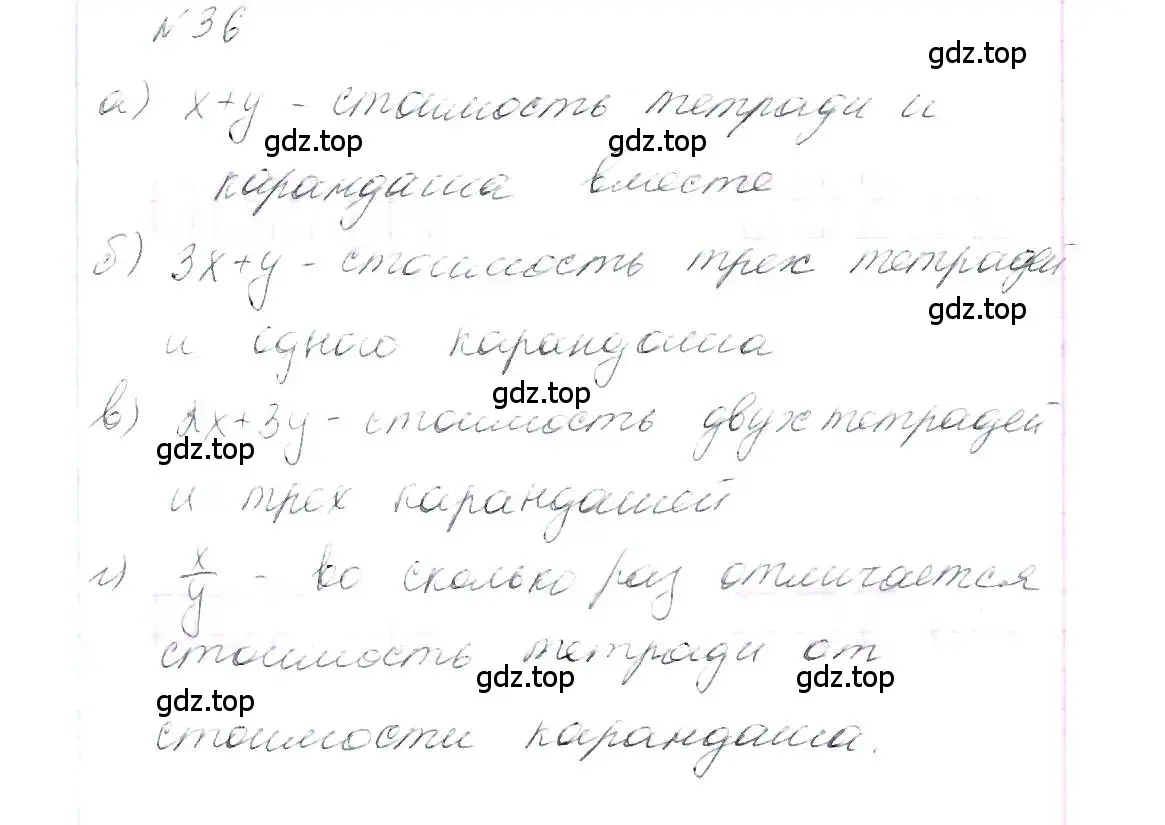 № 36
gdz.top
а) x+y - стоимость тетради и
gdz.top gdz.top
карандаша вместе
б) 3x+y - стоимость трех тетрадей
gdz.top
и одного карандаша
gdz.top
в) 2x+3y - стоимость двух тетрадей
gdz.top
и трех карандашей
г) x/y - во сколько раз отличается
стоимость тетради от
gdz.top gdz.top
gdz.top
стоимости карандаша.